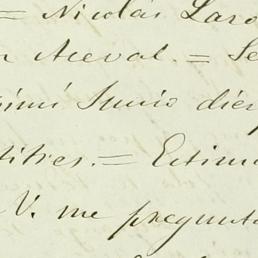 = Nicolás Laro
Aceval. = Se
Junio diez
titres. = Estima
V. me pregunta